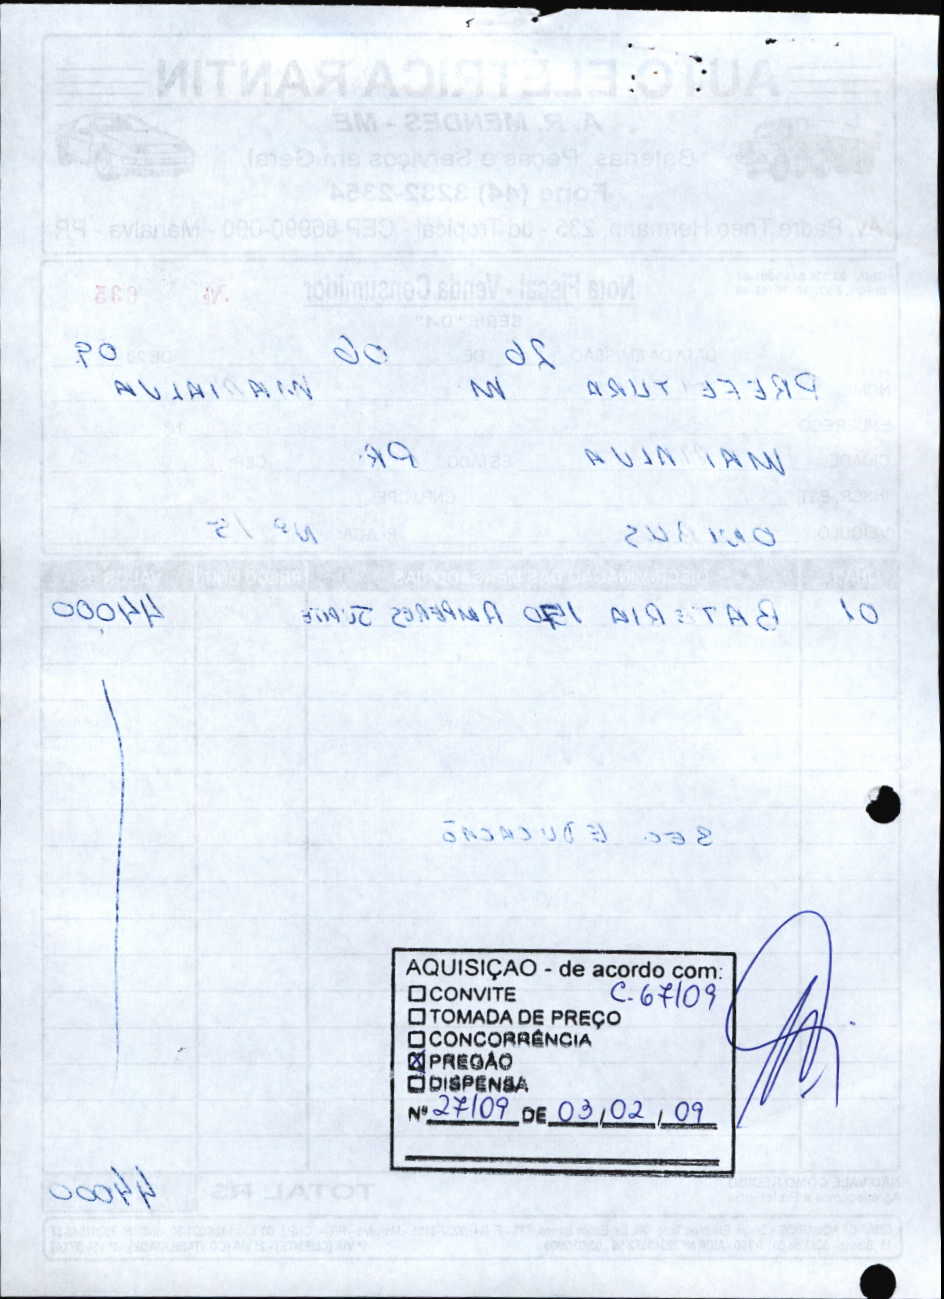 AUTO ELÉTRICA RANTIN
A. R. MENDES - ME
Baterias, Peças e Serviços em Geral
Fone (44) 3232-2354
Av. Padre Theo Hermann, 235 - Jd. Tropical - CEP 86990-000 - Marialva - PR
Nota Fiscal - Venda Consumidor
Nº 035
SÉRIE "D-1"
DATA DA EMISSÃO 26 DE 06 DE 20 09
PREFEITURA M MARIALVA
ENDEREÇO
CIDADE MARIALVA ESTADO PR. CEP
INSCR. EST. CNPJ/CPF
VEÍCULO ONIBUS PLACA Nº 15
DISCRIMINAÇÃO DAS MERCADORIAS PREÇO UNIT.
01 BATERIA 150 AMPERES 44000
SEC. EDUCACAO
AQUISIÇAO - de acordo com:
CONVITE C-67/09
TOMADA DE PREÇO
CONCORRÊNCIA
PREGÃO
DISPENSA
Nº 27/09 DE 03/02/09
TOTAL R$ 44000